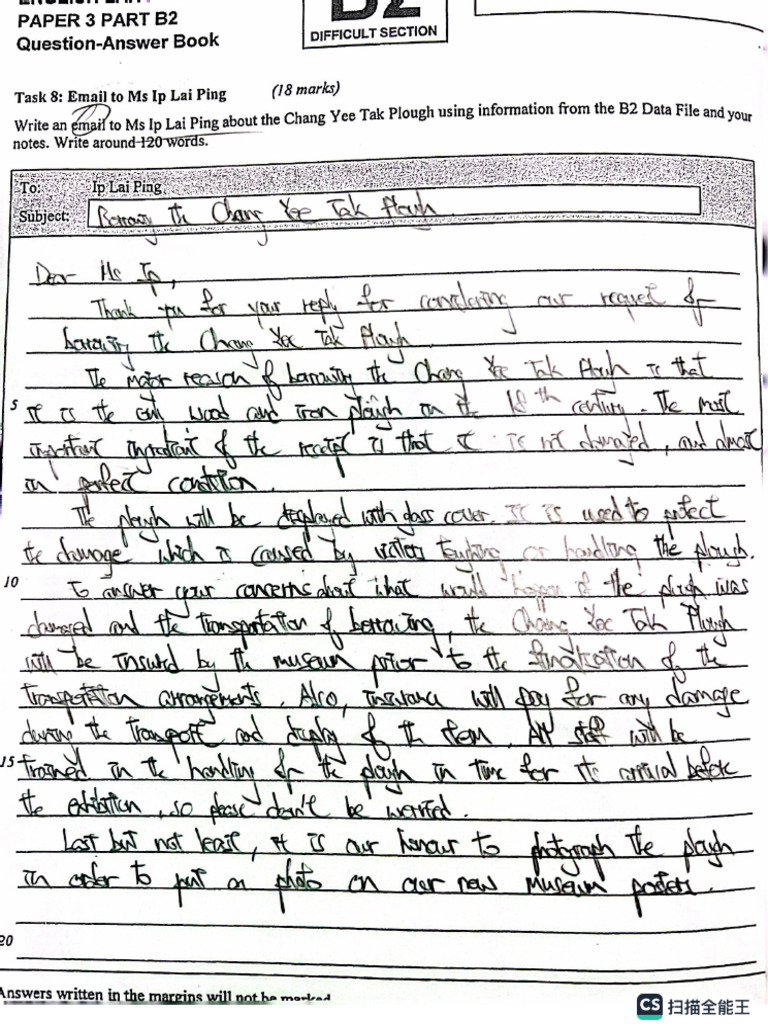 PAPER 3 PART B2
Question-Answer Book
B2
DIFFICULT SECTION
Task 8: Email to Ms Ip Lai Ping (18 marks)
Write an email to Ms Ip Lai Ping about the Chang Yee Tak Plough using information from the B2 Data File and your
notes. Write around 120 words.
To: Ip Lai Ping
Subject: Borrowing the Chang Yee Tak Plough
Dear Ms Ip,
Thank you for your reply for considering our request of
borrowing the Chang Yee Tak Plough.
The major reason of borrowing the Chang Yee Tak Plough is that
5 it is the only wood and iron plough in the 18th century. The most
important ingredient of the receipt is that it is not damaged, and almost
in perfect condition.
The plough will be displayed with glass cover. It is used to protect
the damage which is caused by visitors touching or handling the plough.
10 To answer your concerns about what would happen if the plough was
damaged and the transportation of borrowing, the Chang Yee Tak Plough
will be insured by the museum prior to the finalization of the
transportation arrangements. Also, insurance will pay for any damage
during the transport and display of the item. All staff will be
15 trained in the handling of the plough in time for its arrival before
the exhibition, so please don't be worried.
Last but not least, it is our honour to photograph the plough
in order to put on photo on our new museum posters.
20
Answers written in the margins will not be marked
CS 扫描全能王